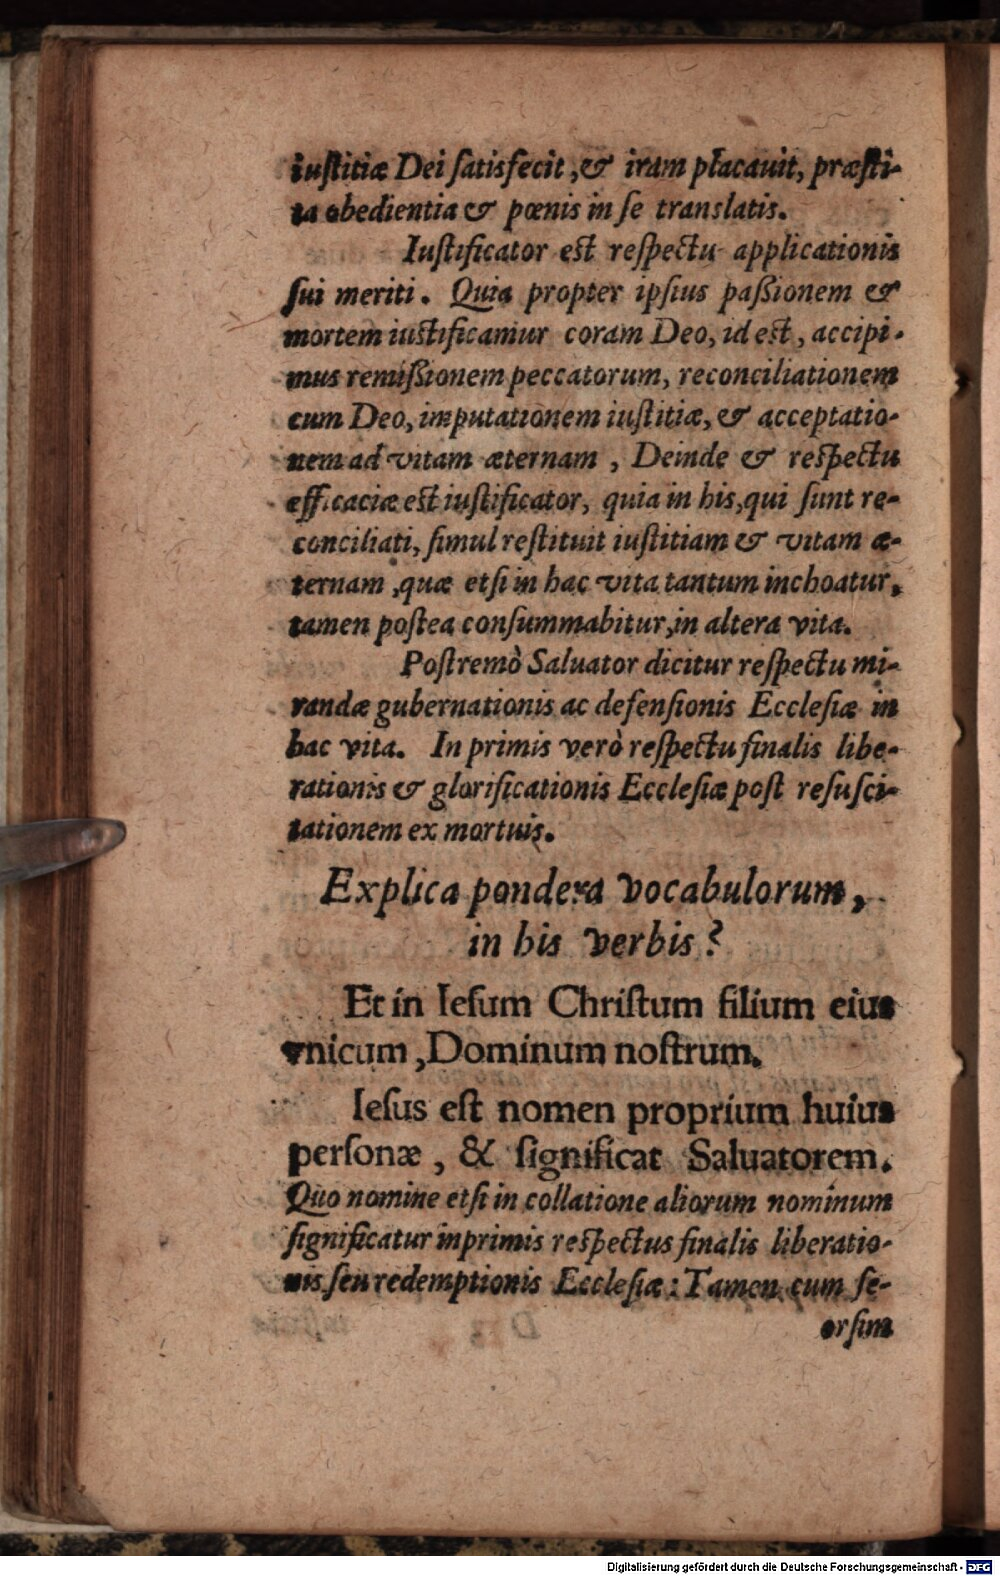 iuſtitiæ Dei ſatisfecit, & iram placauit, præſti-
ta obedientia & pœnis in ſe translatis.
Iuſtificator eſt reſpectu applicationis
ſui meriti. Quia propter ipſius paßionem &
mortem iuſtificamur coram Deo, id eſt, accipi-
mus remißionem peccatorum, reconciliationem
cum Deo, imputationem iuſtitiæ, & acceptatio-
nem ad vitam æternam, Deinde & reſpectu
efficaciæ eſt iuſtificator, quia in his, qui ſunt re-
conciliati, ſimul reſtituit iuſtitiam & vitam æ-
ternam, quæ etſi in hac vita tantum inchoatur,
tamen poſtea conſummabitur, in altera vita.
Poſtremò Saluator dicitur reſpectu mi-
randæ gubernationis ac defenſionis Eccleſiæ in
hac vita. In primis verò reſpectu finalis libe-
rationis & glorificationis Eccleſiæ poſt reſuſci-
tationem ex mortuis.
Explica pondera vocabulorum,
in his verbis?
Et in Ieſum Chriſtum filium eius
vnicum, Dominum noſtrum.
Ieſus eſt nomen proprium huius
perſonæ, & ſignificat Saluatorem.
Quo nomine etſi in collatione aliorum nominum
ſignificatur inprimis reſpectus finalis liberatio-
nis ſeu redemptionis Eccleſiæ: Tamen cum ſe-
orſim
Digitalisierung gefördert durch die Deutsche Forschungsgemeinschaft - DFG